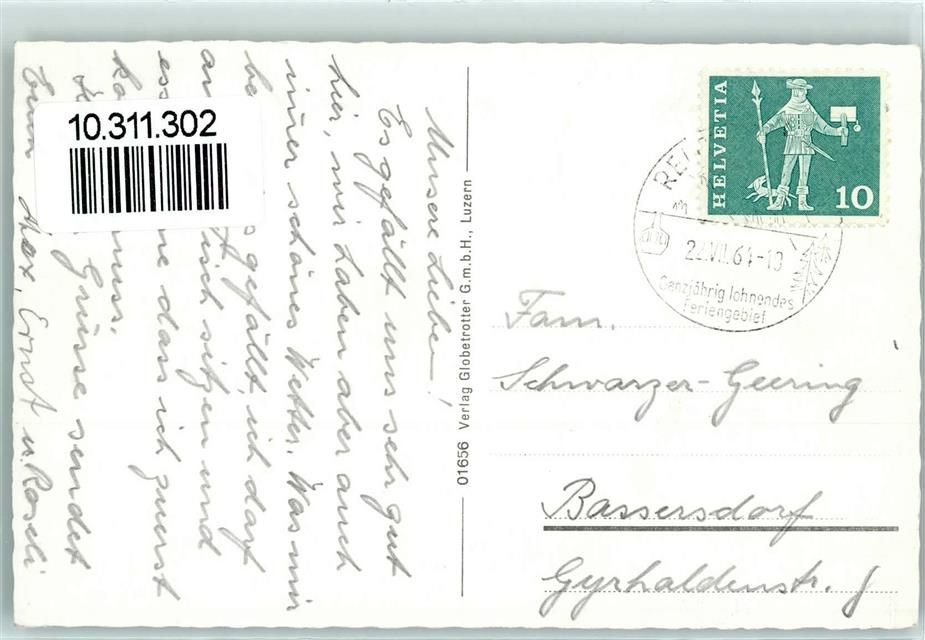 10.311.302
Unsere Lieben!
Es gefällt uns sehr gut
hier, wir haben aber auch
immer schönes Wetter. Was mir
be gefällt, ich darf
am Tisch sitzen und
es ne dass ich zuerst
ko muss.
Grüsse sendet
Euch Max, Ernst u. Roseli
01656 Verlag Globetrotter G.m.b.H., Luzern
HELVETIA
10
22.VII.64-19
Ganzjährig lohnendes
Feriengebiet
Fam.
Schwarzer-Geering
Bassersdorf
Gyrhaldenstr. 8